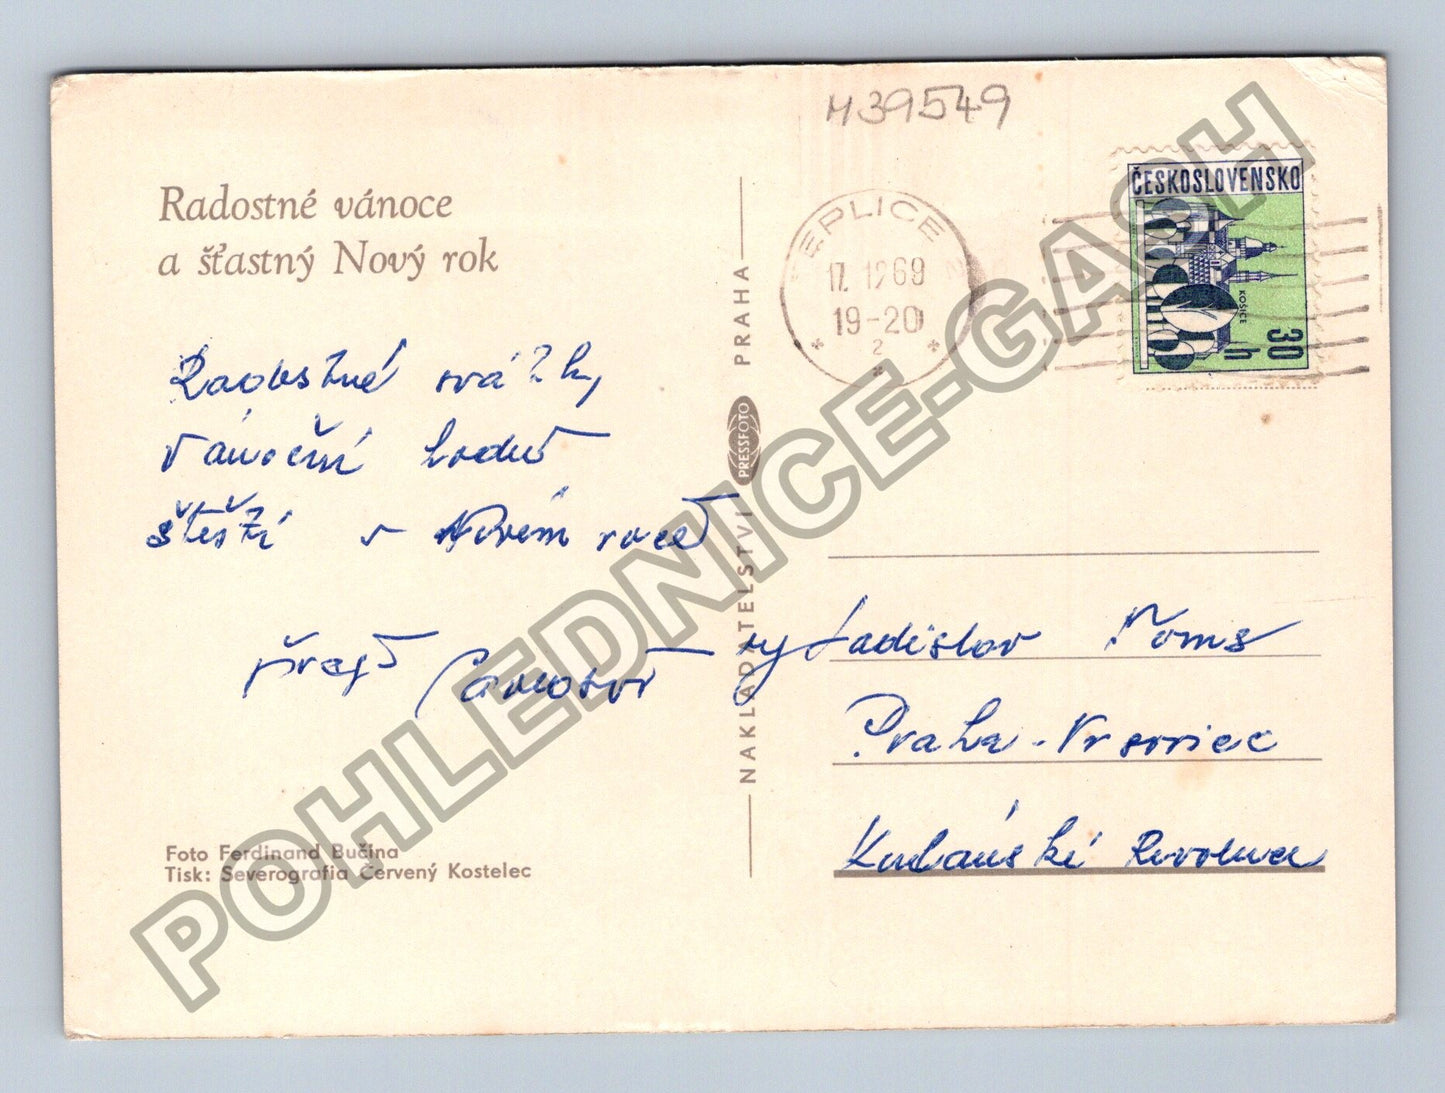 M39549
Radostné vánoce
a šťastný Nový rok
Radostné svátky
vánoční hodně
štěstí v Novém roce
přeje
ČESKOSLOVENSKO
KOŠICE
30 h
TEPLICE
17. 12 69
19-20
2
NAKLADATELSTVÍ PRESSFOTO PRAHA
Ladislav Toms
Praha - Vršovice
Kubánské Revoluce
Foto Ferdinand Bučina
Tisk: Severografia Červený Kostelec
POHLEDNICE-GASH